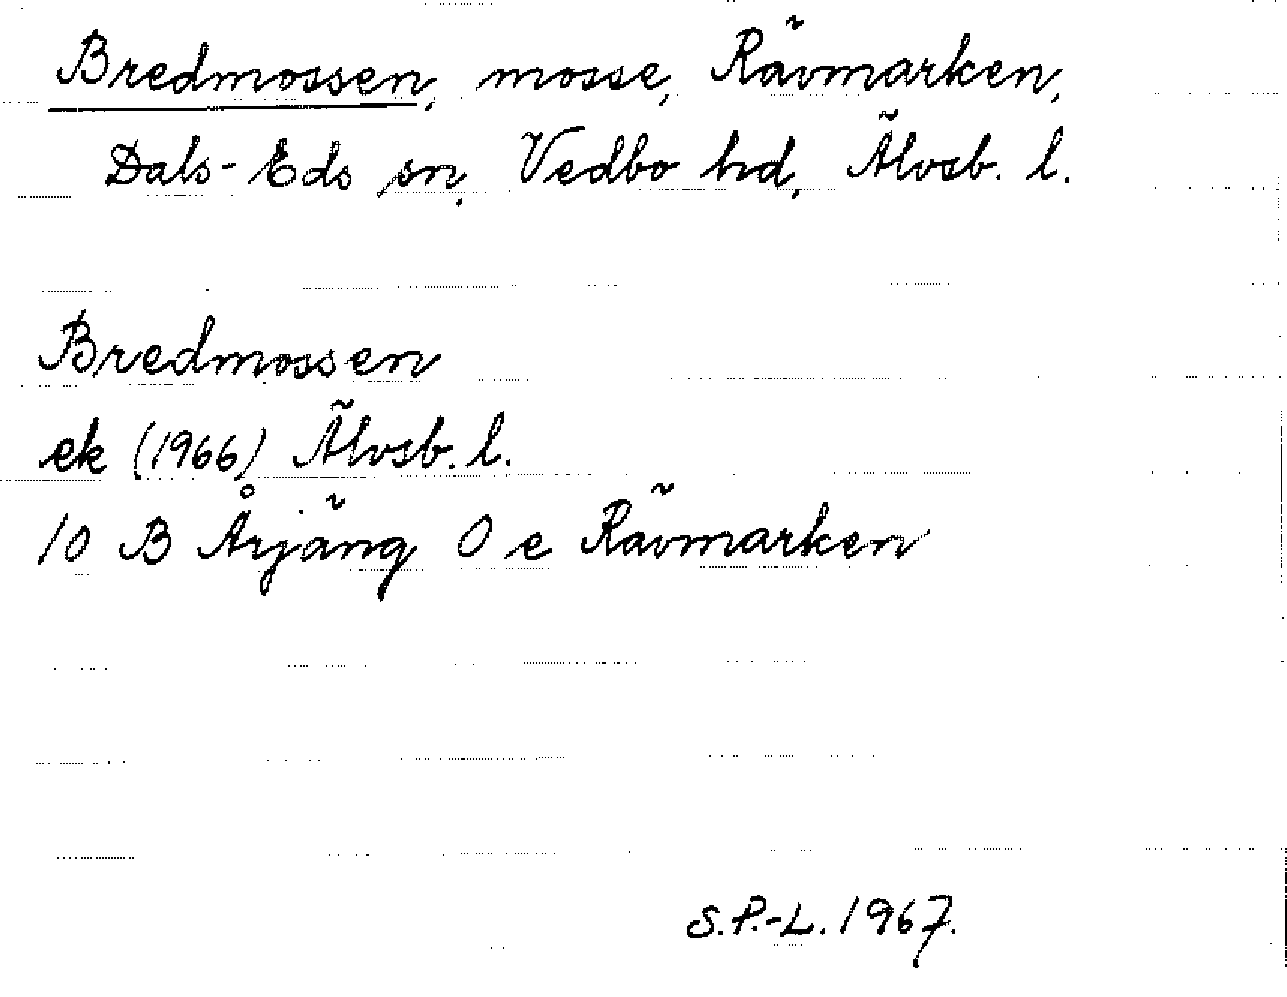 Bredmossen, mosse, Rävmarken,
Dals-Eds sn, Vedbo hd, Älvsb. l.
Bredmossen
ek (1966) Älvsb. l.
10 B Årjäng 0 e Rävmarken
S.P.-L. 1967.